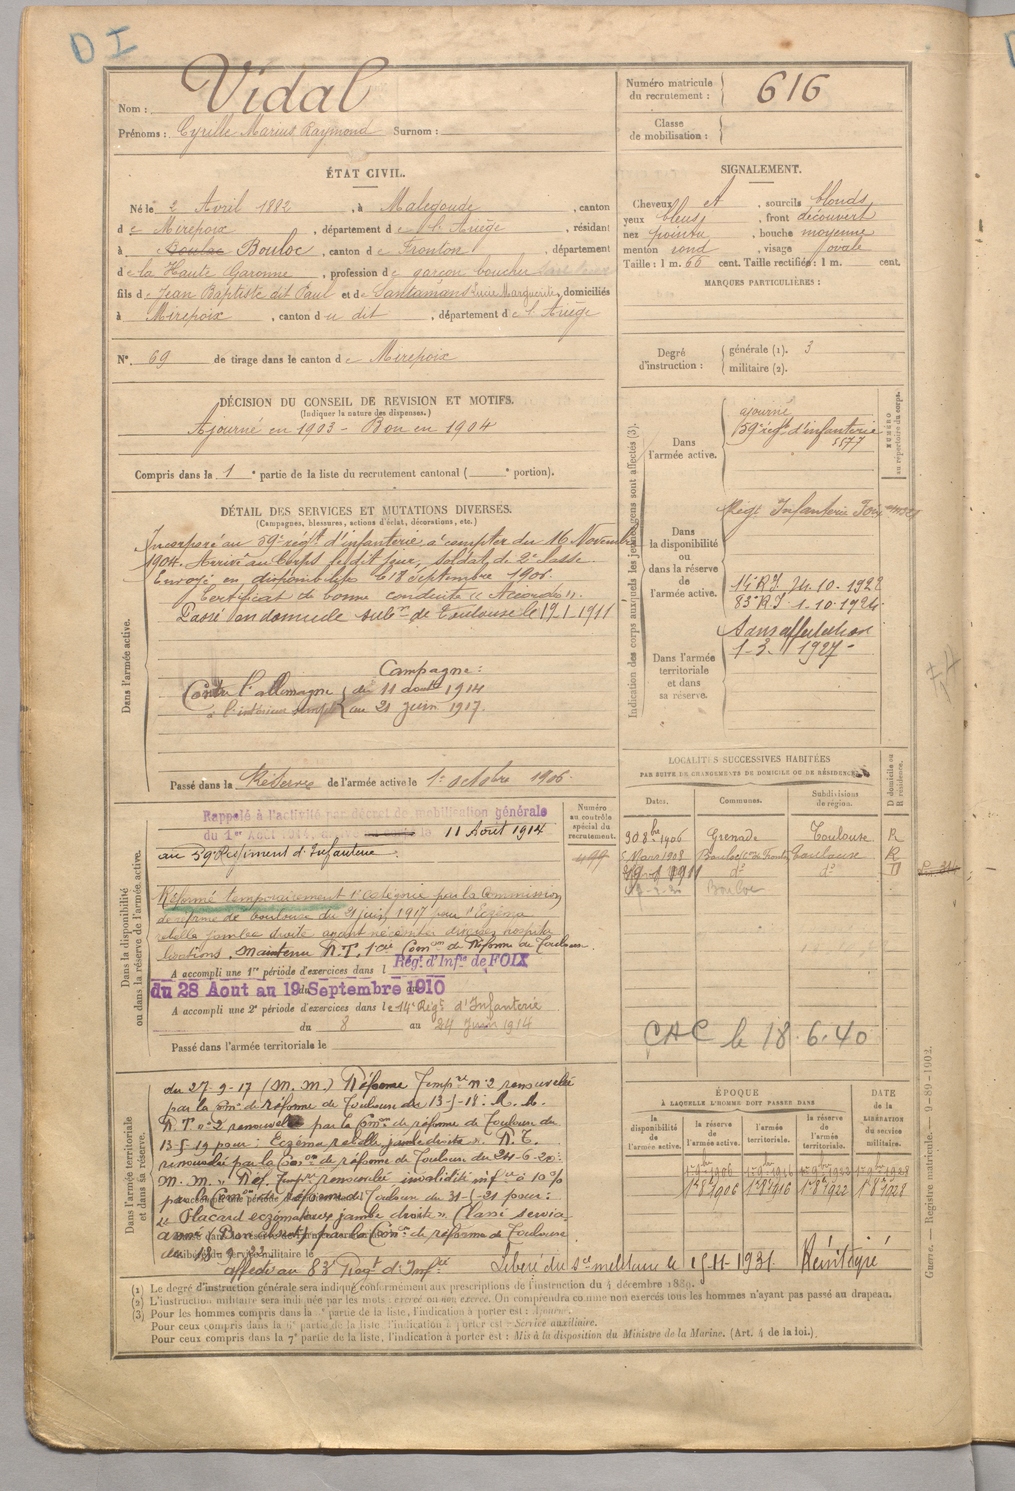 D I
Nom : Vidal
Prénoms : Cyrille Marius Raymond Surnom :
Numéro matricule du recrutement : 616
Classe de mobilisation :
ÉTAT CIVIL.
Né le 2 Avril 1882, à Malegoude, canton
de Mirepoix, département de l'Ariège, résidant
à Bouloc, canton de Fronton, département
de la Haute Garonne, profession de garçon boucher
fils de Jean Baptiste dit Paul et de Santamans Lucie Marguerite, domiciliés
à Mirepoix, canton du dit, département de l'Ariège
N° 69 de tirage dans le canton de Mirepoix
SIGNALEMENT.
Cheveux et , sourcils blonds
yeux bleus, front découvert
nez pointu, bouche moyenne
menton rond, visage ovale
Taille : 1 m. 66 cent. Taille rectifiée : 1 m. cent.
MARQUES PARTICULIÈRES :
Degré d'instruction : générale (1). 3
militaire (2).
DÉCISION DU CONSEIL DE REVISION ET MOTIFS.
(Indiquer la nature des dispenses.)
Ajourné en 1903 - Bon en 1904
Compris dans la 1e partie de la liste du recrutement cantonal ( e portion).
DÉTAIL DES SERVICES ET MUTATIONS DIVERSES.
(Campagnes, blessures, actions d'éclat, décorations, etc.)
Dans l'armée active.
Incorporé au 59e régt d'infanterie à compter du 16 Novembre
1904. Arrivé au Corps le dit jour, soldat de 2e classe.
Envoyé en disponibilité le 18 Septembre 1906.
Certificat de bonne conduite « Accordé ».
Passé en domicile subon de Toulouse le 19-1-1911
Campagne :
Contre l'allemagne du 11 août 1914
à l'intérieur simple au 21 juin 1917.
Passé dans la Réserve de l'armée active le 1er octobre 1906.
Indication des corps auxquels les jeunes gens sont affectés (3).
NUMÉRO au répertoire du corps.
Dans l'armée active.
ajourné
59e régt d'infanterie
5577
Dans la disponibilité ou dans la réserve de l'armée active.
Régt Infanterie Foix
14e R.I. 24.10.1922
83e R.I 1-10-1924
Dans l'armée territoriale et dans sa réserve.
Sans affectation
1-3. 1927
LOCALITÉS SUCCESSIVES HABITÉES
PAR SUITE DE CHANGEMENTS DE DOMICILE OU DE RÉSIDENCE.
Dates. Communes. Subdivisions de région. D domicile ou R résidence.
30 8bre 1906 Grenade Toulouse R
5 Mars 1908 Bouloc Toulouse R
1911 do do D
Bouloc
CAC le 18.6.40
Dans la disponibilité ou dans la réserve de l'armée active.
Numéro au contrôle spécial du recrutement.
Rappelé à l'activité par décret de mobilisation générale
du 1er Août 1914, le 11 Août 1914
au 59 Régiment d'Infanterie.
Réformé temporairement 1e catégorie par la Commission
de réforme de Toulouse du 21 juin 1917 pour "Eczéma
rebelle jambe droite ayant nécessité diverses hospita-
lisations. Maintenu R.T. 1 Comon de Réforme de Toulouse.
A accompli une 1re période d'exercices dans l Rég. d'Infie de FOIX
du 28 Aout au 19 Septembre 1910
A accompli une 2e période d'exercices dans le 14e Régt d'Infanterie
du 8 au 24 Juin 1914
Passé dans l'armée territoriale le
Dans l'armée territoriale et dans sa réserve.
du 27-9-17 (M. M.) Réforme Tempre n°2 renouvelée
par la Con de réforme de Toulouse du 13-5-18. M. M.
R. T. n°2 renouvelé par la Con de réforme de Toulouse du
13-5-19 pour : Eczéma rebelle jambe droite ». R. T.
renouvelée par la Con de réforme de Toulouse du 24-6-20 :
M. M. » Réf. Tempre renouvelée invalidité infre à 10%
par la Con de Réforme de Toulouse du 31-5-21 pour :
« Placard eczémateux jambe droite » Classé service
armé par la Con de réforme de Toulouse
affecté au 83e Régt d'Infie
Libéré du sce militaire le 15-11-1931. Réintégré
ÉPOQUE
À LAQUELLE L'HOMME DOIT PASSER DANS
DATE de la LIBÉRATION du service militaire.
la disponibilité de l'armée active. la réserve de l'armée active. l'armée territoriale. la réserve de l'armée territoriale.
1er 8bre 1906 1er 8bre 1916 1er 8bre 1922 1er 8bre 1928
(1) Le degré d'instruction générale sera indiqué conformément aux prescriptions de l'instruction du 4 décembre 1889.
(2) L'instruction militaire sera indiquée par les mots : exercé ou non exercé. On comprendra comme non exercés tous les hommes n'ayant pas passé au drapeau.
(3) Pour les hommes compris dans la partie de la liste, l'indication à porter est : Ajourné.
Pour ceux compris dans la 6e partie de la liste, l'indication à porter est : Service auxiliaire.
Pour ceux compris dans la 7e partie de la liste, l'indication à porter est : Mis à la disposition du Ministre de la Marine. (Art. 4 de la loi.)
Guerre. — Registre matricule. — 9-89-1902.